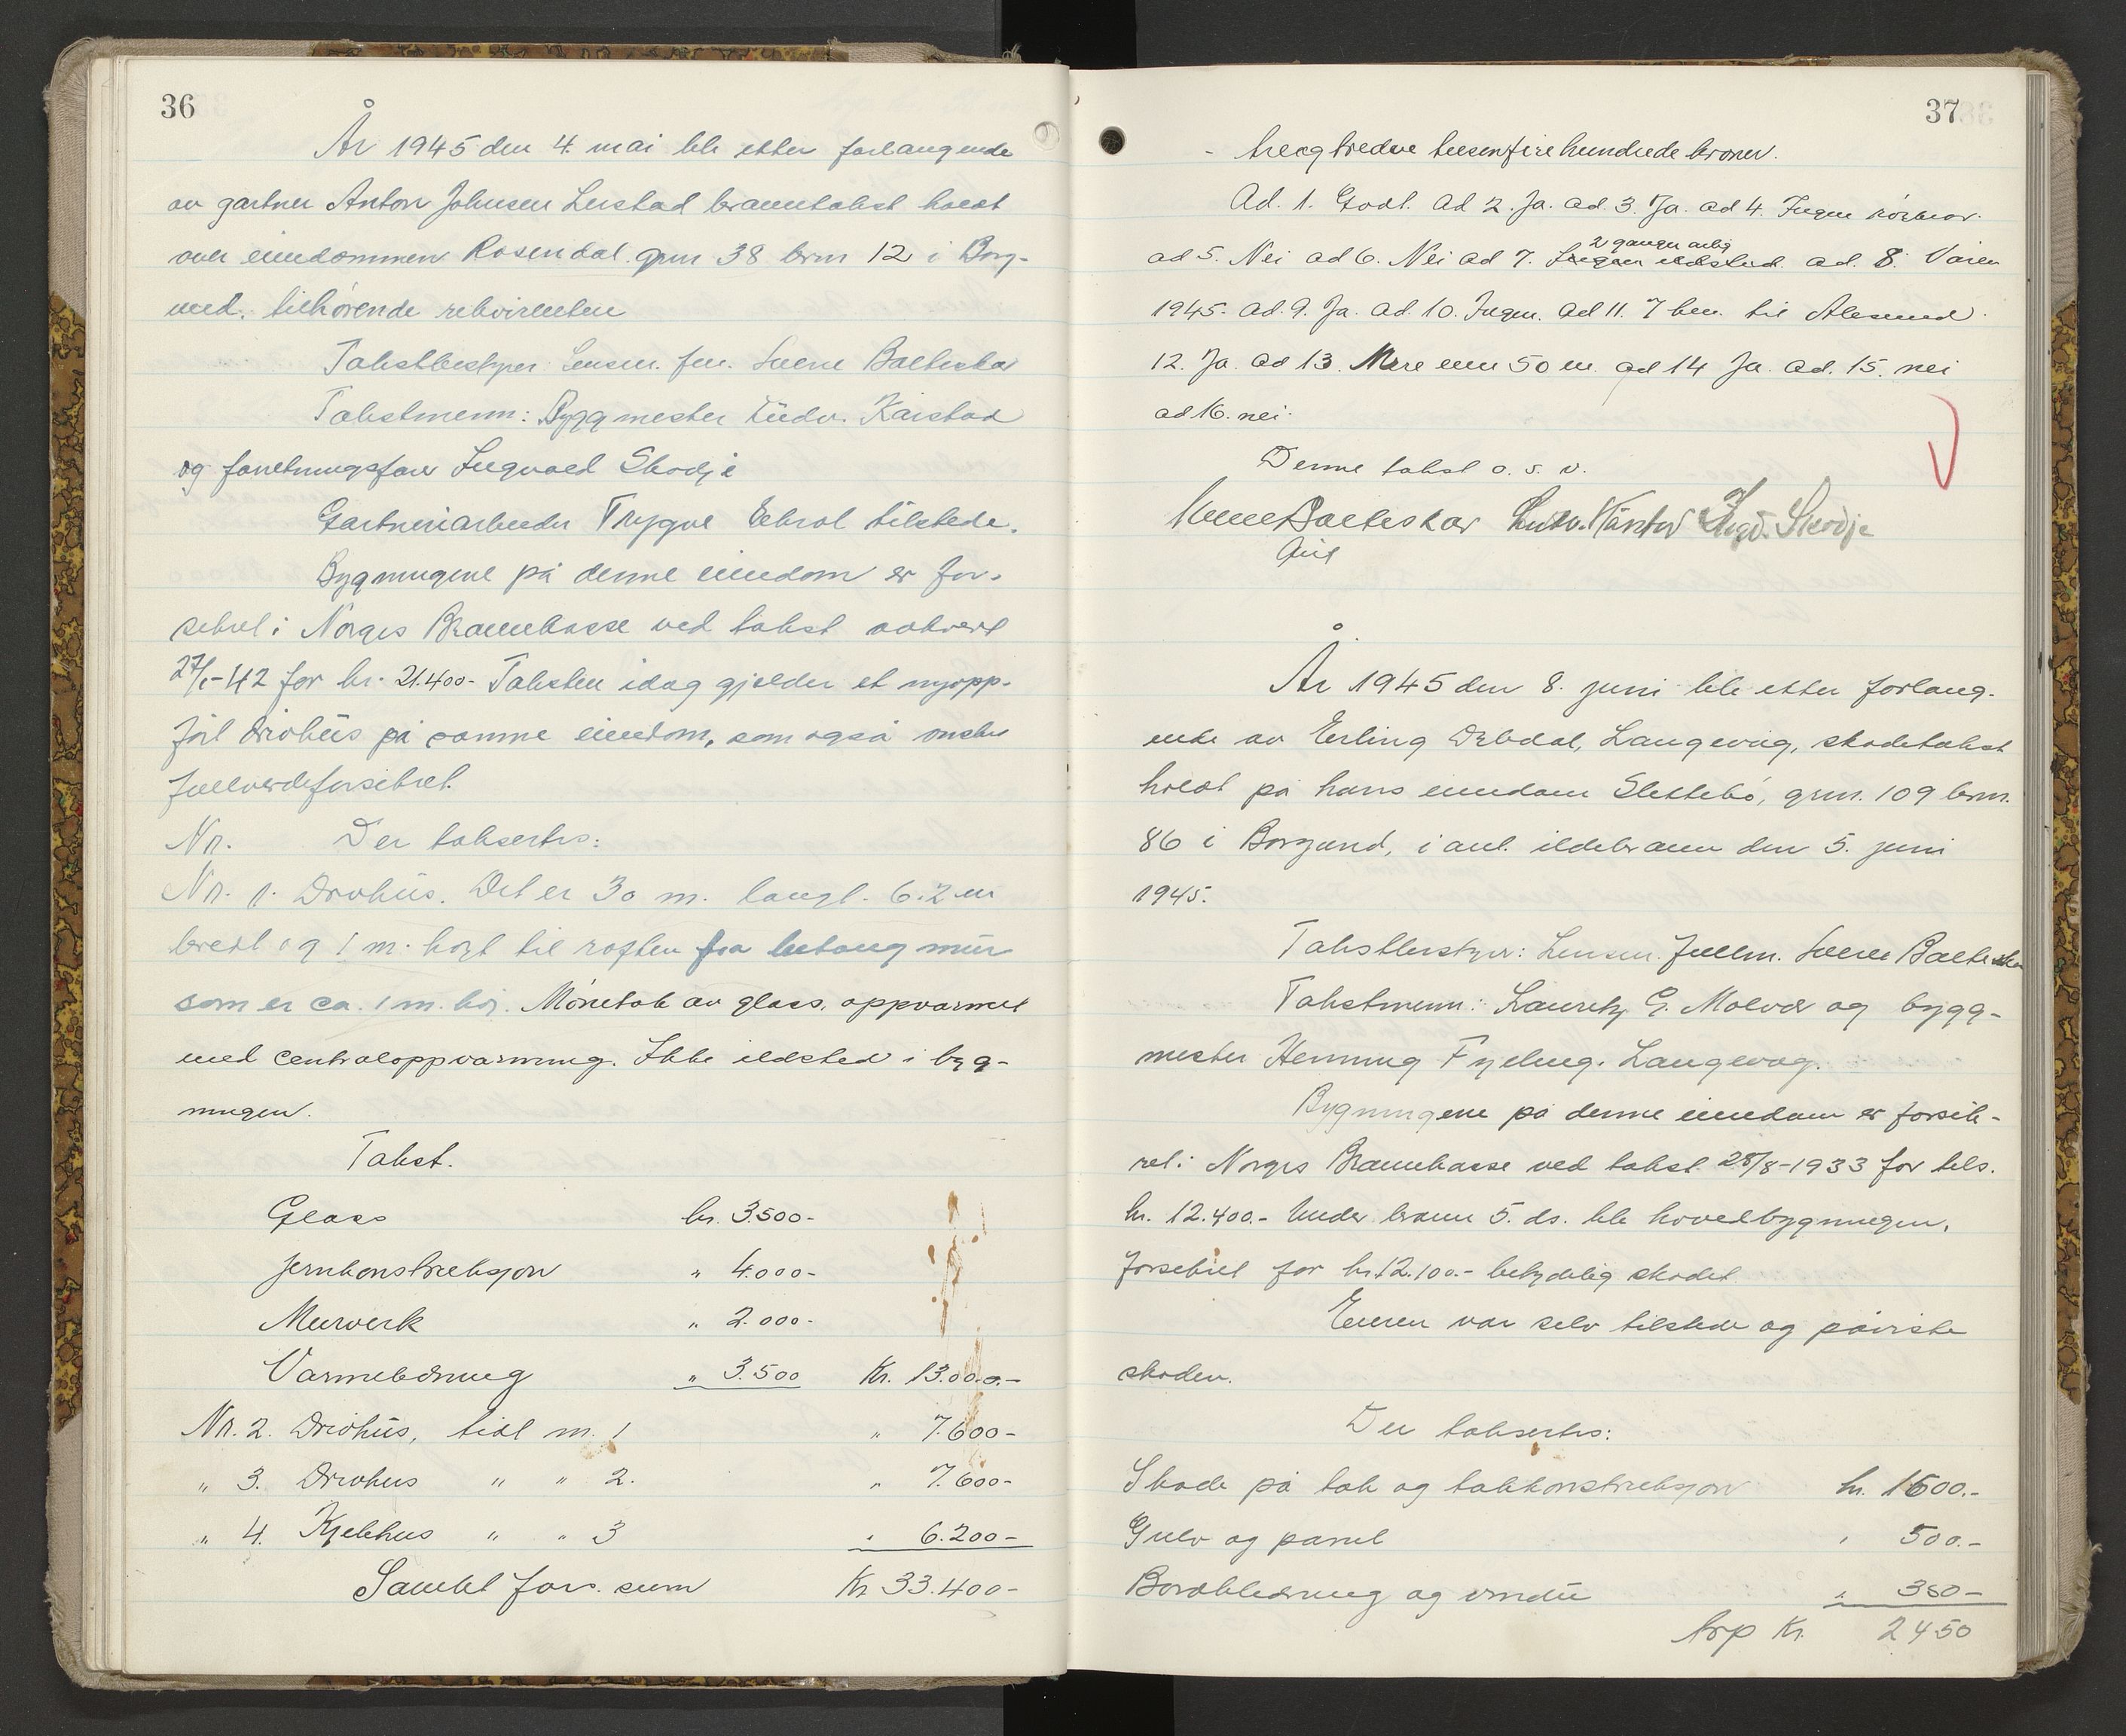 36
År 1945 den 4. mai ble etter forlangende
av gartner Anton Johnsen Lerstad branntakst holdt
over eiendommen Rosendal gnr 38 brnr 12 i Borg-
und. tilhørende rekvirenten
Takstbestyrer Lensm. fm. Sverre Balteskar
Takstmenn: Byggmester Ludv. Karstad
og forretningsfører Ingvald Skodje
Gartneriarbeider Trygve tilstede.
Bygningene på denne eiendom er for-
sikret i Norges Brannkasse ved takst avhold
27/ -42 for kr. 21.400- Taksten idag gjelder et nyopp-
ført drivhus på samme eiendom, som også ønskes
fullverdiforsikret.
Nr. Der taksertes:
Nr. 1. Drivhus. Det er 30 m. langt. 6.2 m
bredt og 1 m. høgt til raften fra betong mur
som er ca. 1 m. høi. Mønetak av glass, oppvarmet
med centraloppvarming. Ikke ildsted i byg-
ningen.
Takst.
Glass kr. 3.500-
Jernkonstruksjon " 4.000-
Murverk " 2.000-
Varmeledning " 3.500 Kr. 13.000.-
Nr. 2. Drivhus, tidl nr. 1 " 7.600-
" 3. Drivhus " " 2. " 7.600-
" 4. Kjelehus " " 3 " 6.200-
Samlet fors. sum Kr 33.400-
37
- treogtredve tusenfirehundrede kroner.
Ad. 1. Godt. Ad 2. Ja. ad. 3. Ja. ad 4. Ingen
2 ganger årlig
ad 5. Nei ad 6. Nei ad 7. Ingen ildsted. ad. 8. Våren
1945. Ad. 9. Ja. Ad. 10. Ingen. Ad 11. 7 km. til Ålesund
12. Ja. ad 13. Mere enn 50 m. ad 14 Ja. ad. 15. nei
ad 16. nei.
Denne takst o. s. v.
Sverre Balteskar Ludv. Karstad Ingv. Skodje
År 1945 den 8. juni ble etter forlang-
ende av Erling Debdal, Langevåg, skadetakst
holdt på hans eiendom Slettebø, gnr. 109 brnr.
86 i Borgund, i anl. ildebrann den 5. juni
1945.
Takstbestyrer: Lensm. fullm. Sverre Balteskar
Takstmenn: Lauritz G. Molvær og bygg-
mester Henning Fylling. Langevåg.
Bygningene på denne eiendom er forsik-
ret i Norges Brannkasse ved takst 28/8-1933 for tils.
kr. 12.400.- Under brann 5. ds. ble hovedbygningen,
forsikret for kr. 12.100.- betydelig skadet
Eieren var selv tilstede og påviste
skaden.
Der taksertes:
Skade på tak og takkonstruksjon kr. 1600.-
Gulv og panel " 500.-
Bordkledning og vindu " 350-
trp Kr. 2450